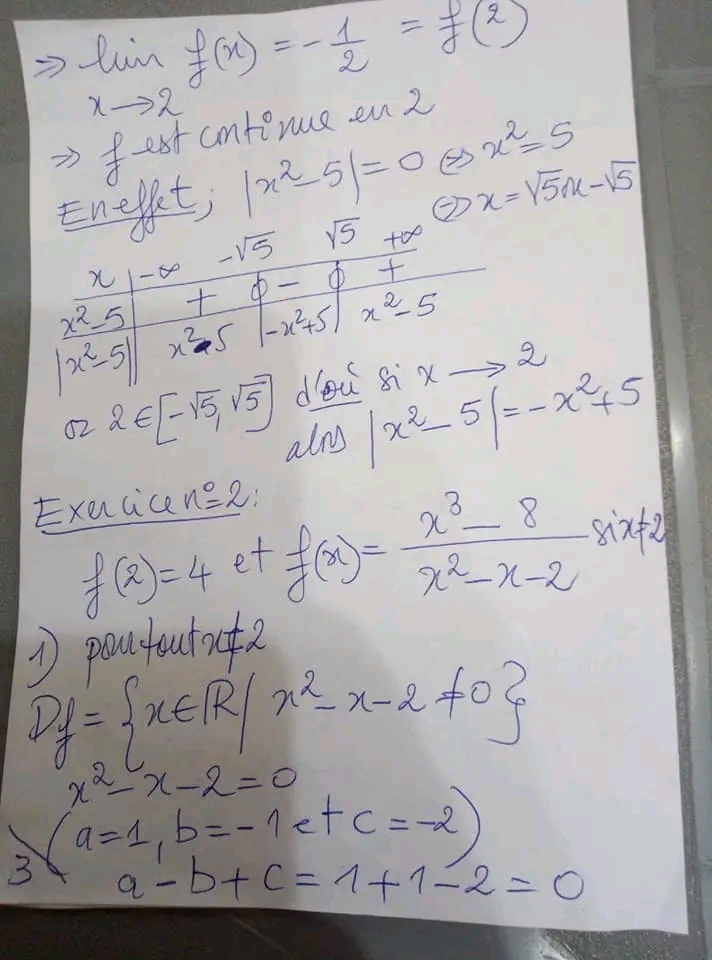 ⇒ lim f(x) = -1/2 = f(2)
x→2
⇒ f est continue en 2
En effet; |x²-5| = 0 ⇔ x² = 5
⇔ x = √5 ou x = -√5
x | -∞ -√5 √5 +∞
x²-5 | + 0 - 0 +
|x²-5| | x²-5 | -x²+5 | x²-5
or 2 ∈ [-√5, √5] d'où si x → 2
alors |x²-5| = -x²+5
Exercice n°2:
f(2) = 4 et f(x) = (x³-8)/(x²-x-2) si x≠2
1) pour tout x≠2
Df = {x∈ℝ / x²-x-2 ≠ 0}
x²-x-2 = 0
(a=1, b=-1 et c=-2)
3 a-b+c = 1+1-2 = 0